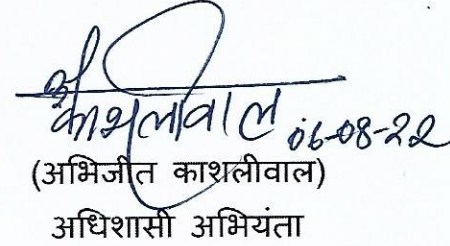 काशलीवाल 06-08-22
(अभिजीत काशलीवाल)
अधिशासी अभियंता